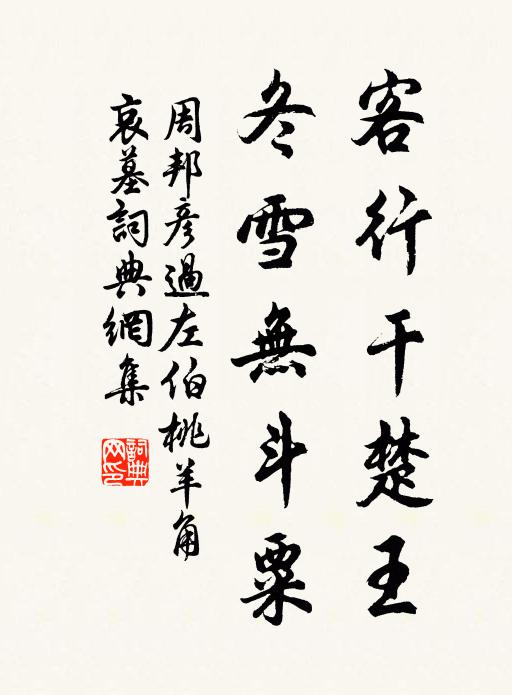 客行干楚王
冬雪無斗粟
周邦彦過左伯桃羊角
哀墓詞典網集
詞典網印